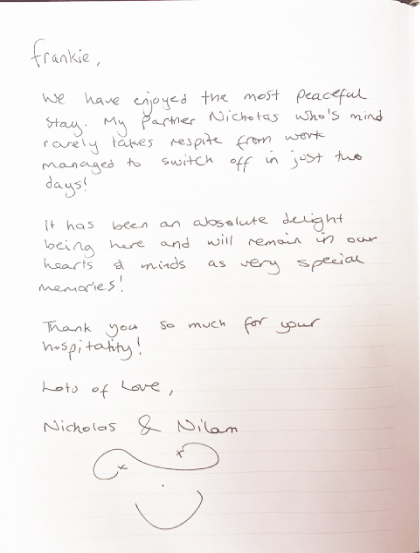 frankie,
We have enjoyed the most peaceful
stay. My Partner Nicholas who's mind
rarely takes respite from work
managed to switch off in just two
days!
It has been an absolute delight
being here and will remain in our
hearts & minds as very special
memories!
Thank you so much for your
hospitality!
Lots of Love,
Nicholas & Nilam